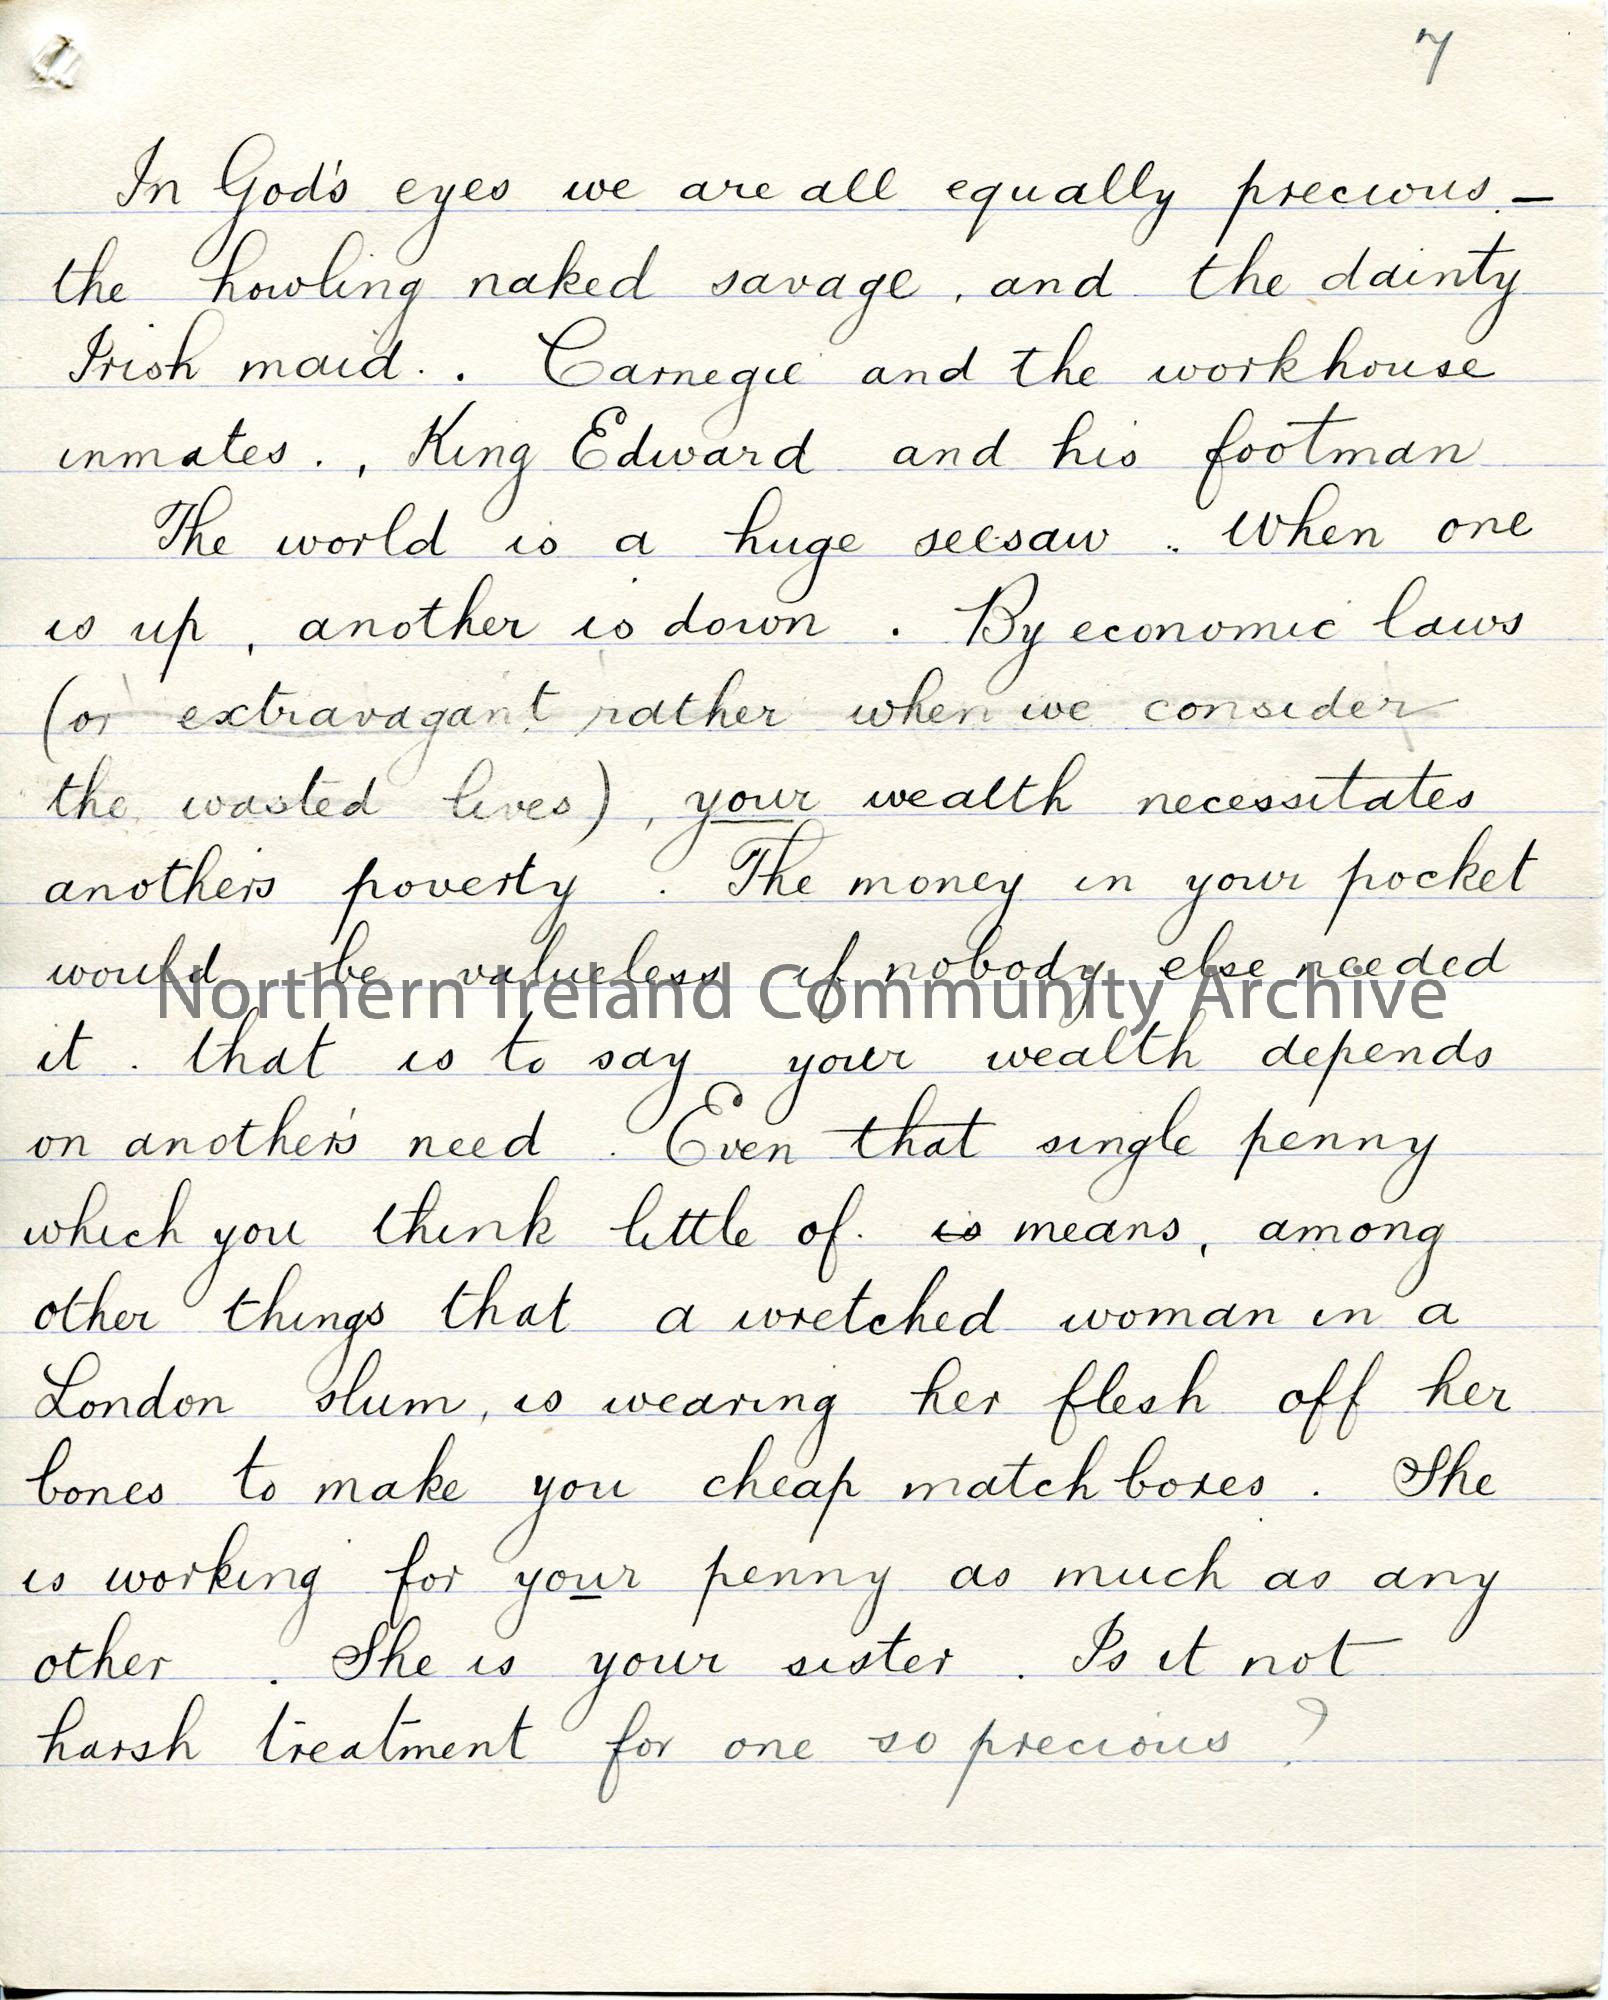 7
In God's eyes we are all equally precious. —
the howling naked savage, and the dainty
Irish maid. . Carnegie and the workhouse
inmates. , King Edward and his footman
The world is a huge seesaw. When one
is up, another is down. By economic laws
(or extravagant rather when we consider
the wasted lives), your wealth necessitates
another's poverty. The money in your pocket
would be valueless if nobody else needed
Northern Ireland Community Archive
it. that is to say your wealth depends
on another's need. Even that single penny
which you think little of. is means, among
other things that a wretched woman in a
London slum, is wearing her flesh off her
bones to make you cheap match boxes. She
is working for your penny as much as any
other. She is your sister. Is it not
harsh treatment for one so precious?